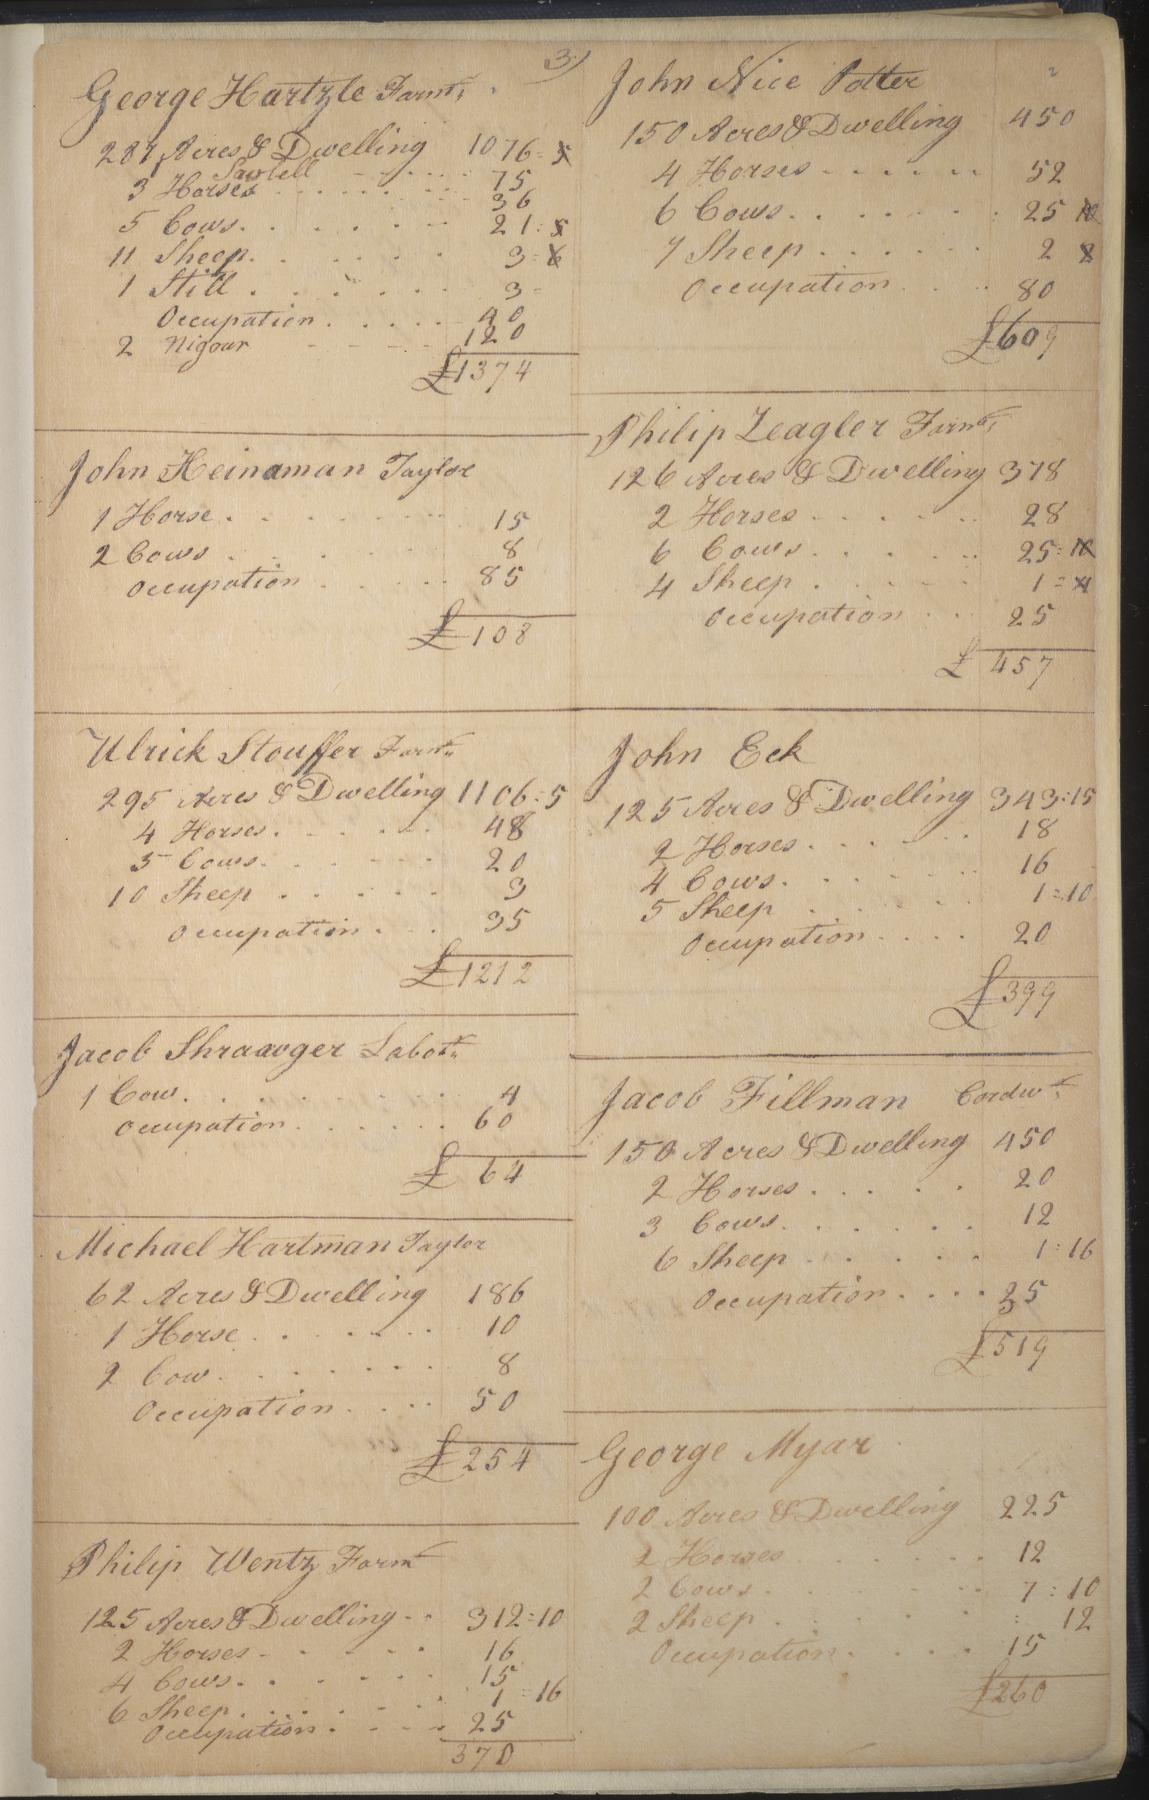 3)
George Hartzle Farmr
287 Acres & Dwelling 1076 = 5
Sawlell 75
3 Horses 36
5 Cows 21 : 5
11 Sheep 3 = 6
1 Still 3 =
Occupation 40
2 Nigour 120
£1374
John Heinaman Taylor
1 Horse 15
2 Cows 8
Occupation 85
£108
Ulrick Stouffer Farmr
295 Acres & Dwelling 1106 : 5
4 Horses 48
5 Cows 20
10 Sheep 3
Occupation 35
£1212
Jacob Shraawger Labor
1 Cow 4
Occupation 60
£64
Michael Hartman Taylor
62 Acres & Dwelling 186
1 Horse 10
2 Cow 8
Occupation 50
£254
Philip Wentz Farmr
125 Acres & Dwelling 312 = 10
2 Horses 16
4 Cows 15
6 Sheep 1 = 16
Occupation 25
370
John Nice Potter
150 Acres & Dwelling 450
4 Horses 52
6 Cows 25 10
7 Sheep 2 8
Occupation 80
£609
Philip Zeagler Farmr
126 Acres & Dwelling 378
2 Horses 28
6 Cows 25 : 10
4 Sheep 1 = 4
Occupation 25
£457
John Eck
125 Acres & Dwelling 343 : 15
2 Horses 18
4 Cows 16
5 Sheep 1 = 10
Occupation 20
£399
Jacob Fillman Cordwr
150 Acres & Dwelling 450
2 Horses 20
3 Cows 12
6 Sheep 1 : 16
Occupation 35
£519
George Myar
100 Acres & Dwelling 225
2 Horses 12
2 Cows 7 : 10
2 Sheep : 12
Occupation 15
£260